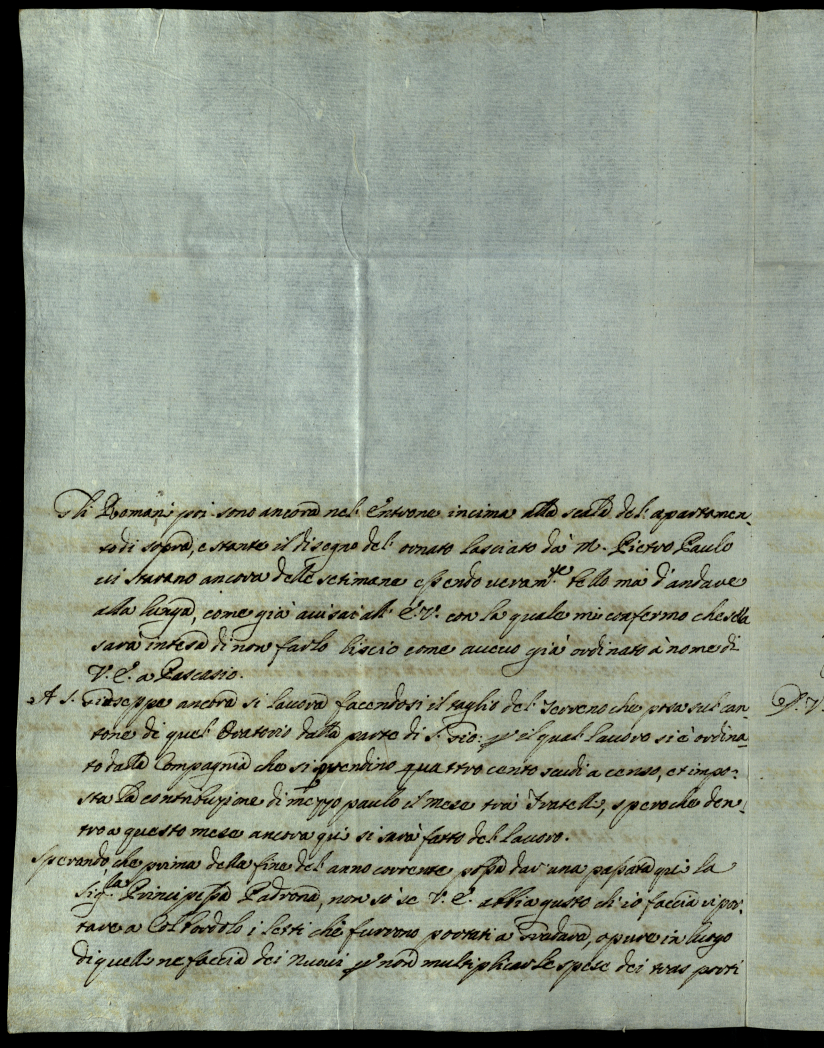 Gli Romani poi sono ancora nel' entrone incima alla scala del' apartamen-
to di sopra, e stante il disegno del' ornato lasciato da M. Pietro Paulo
vi starano ancora delle setimane essendo veram.te bello ma d'andare
alla lunga, come già avisai all' E.V. con la quale mi confermo che se la
sarà intesa di non farlo liscio come avevo già ordinato a nome di
V.E. a Pascasio.
A S. Gioseppe ancora si lavora facendosi il taglio del' Terreno che posa sul can-
tone di quel' Oratorio dalla parte di S. Gio: p il qual' lavoro si è ordina-
to dalla Compagnia che si prendino quattro cento scudi a censo, et impo-
sta la contribuzione di mezzo paulo il mese trà Fratelli, spero che den-
tro a questo mese ancora qui si sarà fatto del' lavoro.
Sperando, che prima della fine del' anno corrente possa dar' una passata qui la
Sig.ra Principessa Padrona, non sò se V.E. abbia gusto ch' io faccia ripor-
tare a i Letti che furono portati a, opure in luogo
di quelli ne faccia dei nuovi p non multiplicar le spese dei trasporti